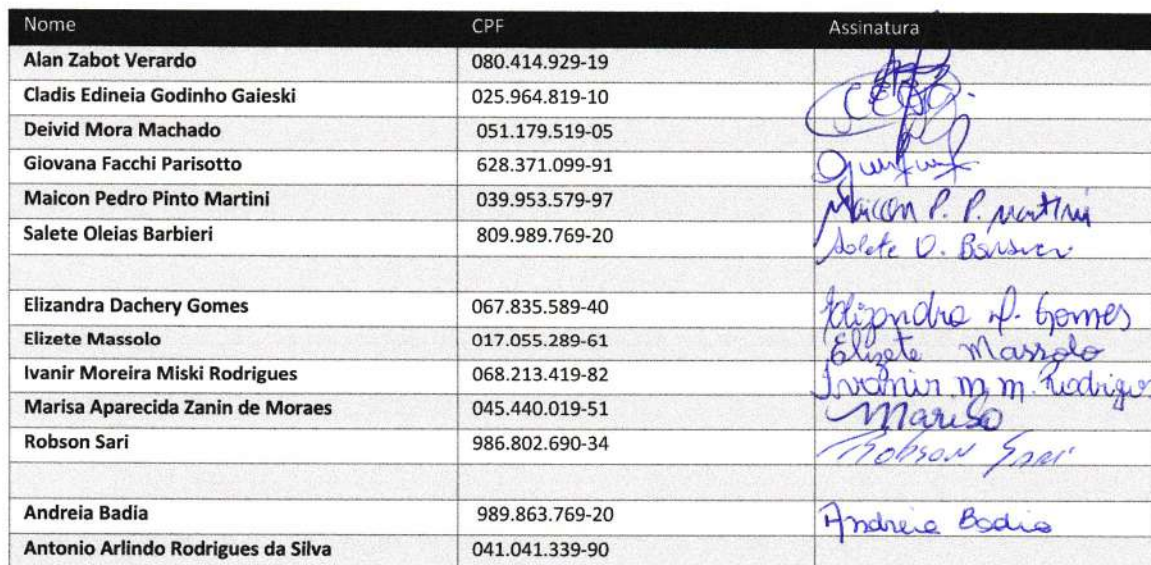 Nome CPF Assinatura
Alan Zabot Verardo 080.414.929-19
Cladis Edineia Godinho Gaieski 025.964.819-10
Deivid Mora Machado 051.179.519-05
Giovana Facchi Parisotto 628.371.099-91
Maicon Pedro Pinto Martini 039.953.579-97 Maicon P. P. Martini
Salete Oleias Barbieri 809.989.769-20 Salete O. Barbieri
Elizandra Dachery Gomes 067.835.589-40 Elizandra D. Gomes
Elizete Massolo 017.055.289-61 Elizete Massolo
Ivanir Moreira Miski Rodrigues 068.213.419-82 Ivanir M. M. Rodrigues
Marisa Aparecida Zanin de Moraes 045.440.019-51 Marisa
Robson Sari 986.802.690-34 Robson Sari
Andreia Badia 989.863.769-20 Andreia Badia
Antonio Arlindo Rodrigues da Silva 041.041.339-90